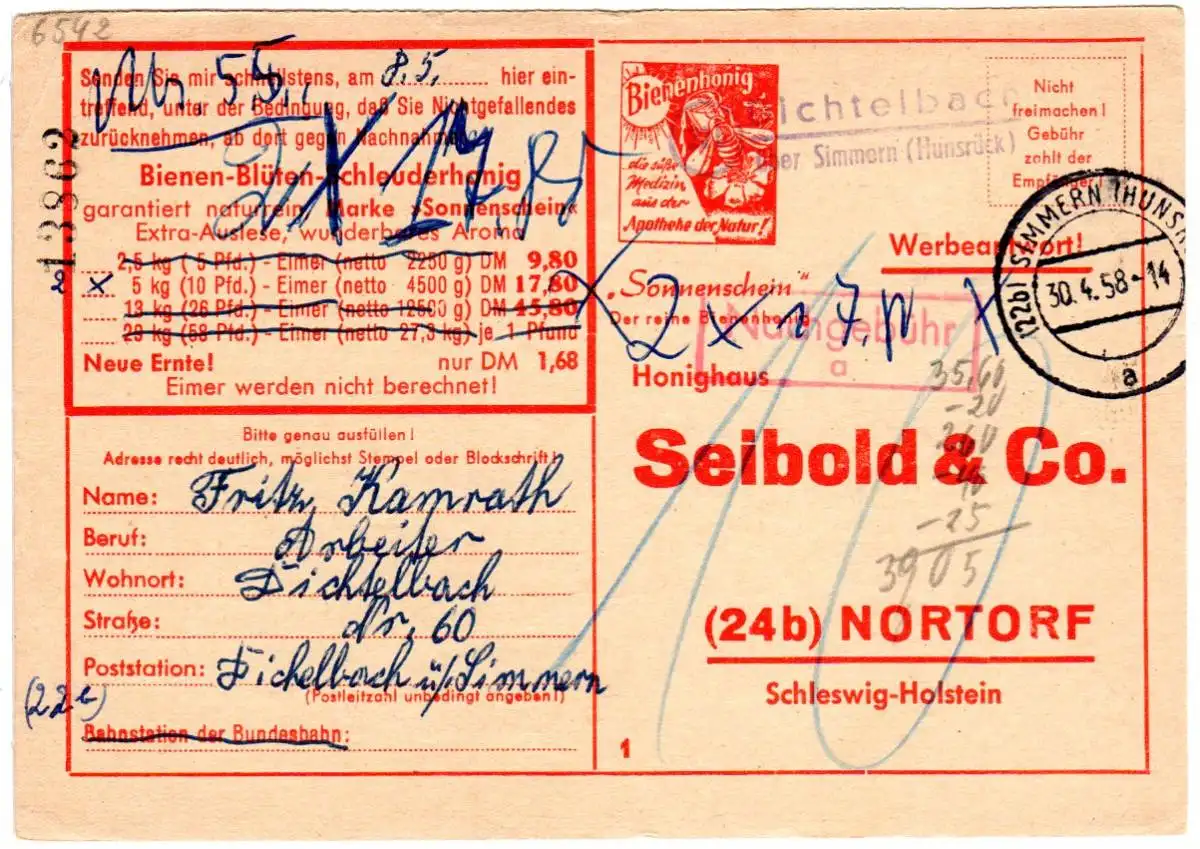 6542
Nr 5.5.
Senden Sie mir schnellstens, am 8.5. hier ein-
treffend, unter der Bedingung, daß Sie Nichtgefallendes
zurücknehmen, ab dort gegen Nachnahme
Bienen-Blüten-Schleuderhonig
garantiert naturrein, Marke »Sonnenschein«
Extra-Auslese, wunderbares Aroma
2,5 kg ( 5 Pfd.) - Eimer (netto 2250 g) DM 9,80
x 5 kg (10 Pfd.) - Eimer (netto 4500 g) DM 17,80
13 kg (26 Pfd.) - Eimer (netto 12500 g) DM 45,80
29 kg (58 Pfd.) - Eimer (netto 27,3 kg) je 1 Pfund
Neue Ernte! nur DM 1,68
Eimer werden nicht berechnet!
13862
Bitte genau ausfüllen!
Adresse recht deutlich, möglichst Stempel oder Blockschrift!
Name: Fritz Kamrath
Beruf: Arbeiter
Wohnort: Dichtelbach
Straße: Nr. 60
Poststation: Dichelbach ü/Simmern
(Postleitzahl unbedingt angeben!)
Bahnstation der Bundesbahn:
Bienenhonig
die süße
Medizin
aus der
Apotheke der Natur!
Dichtelbach
über Simmern (Hunsrück)
Nicht
freimachen!
Gebühr
zahlt der
Empfänger!
Werbeantwort!
(22b) SIMMERN (HUNSR
30.4.58-14
a
„Sonnenschein"
Der reine Bienenhonig
2 x 17,
Nachgebühr
a
Honighaus
Seibold & Co.
35,60
-20
260
-25
3905
10
(24b) NORTORF
Schleswig-Holstein
1